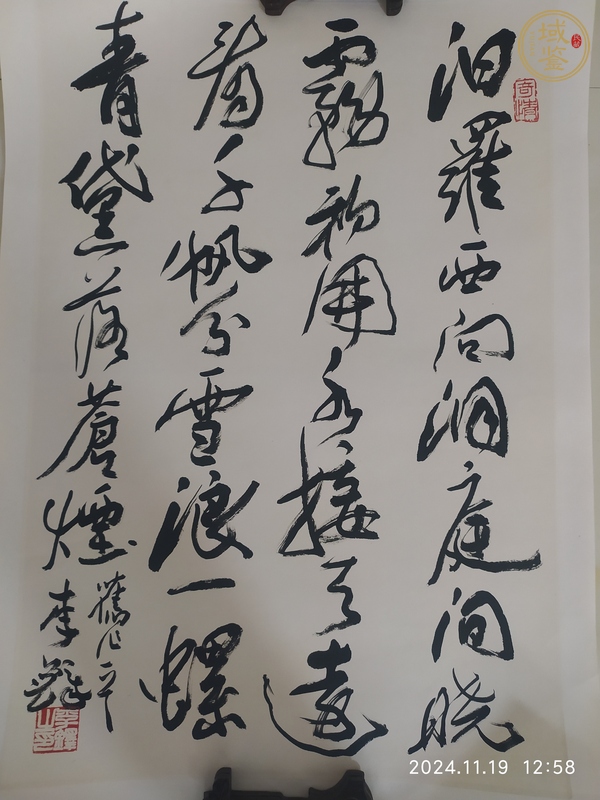 汨羅西向洞庭间晓
霧初開水接天遠
看千帆分雪浪一螺
青黛落蒼煙
舊作
李鐸
域鉴
2024.11.19 12:58